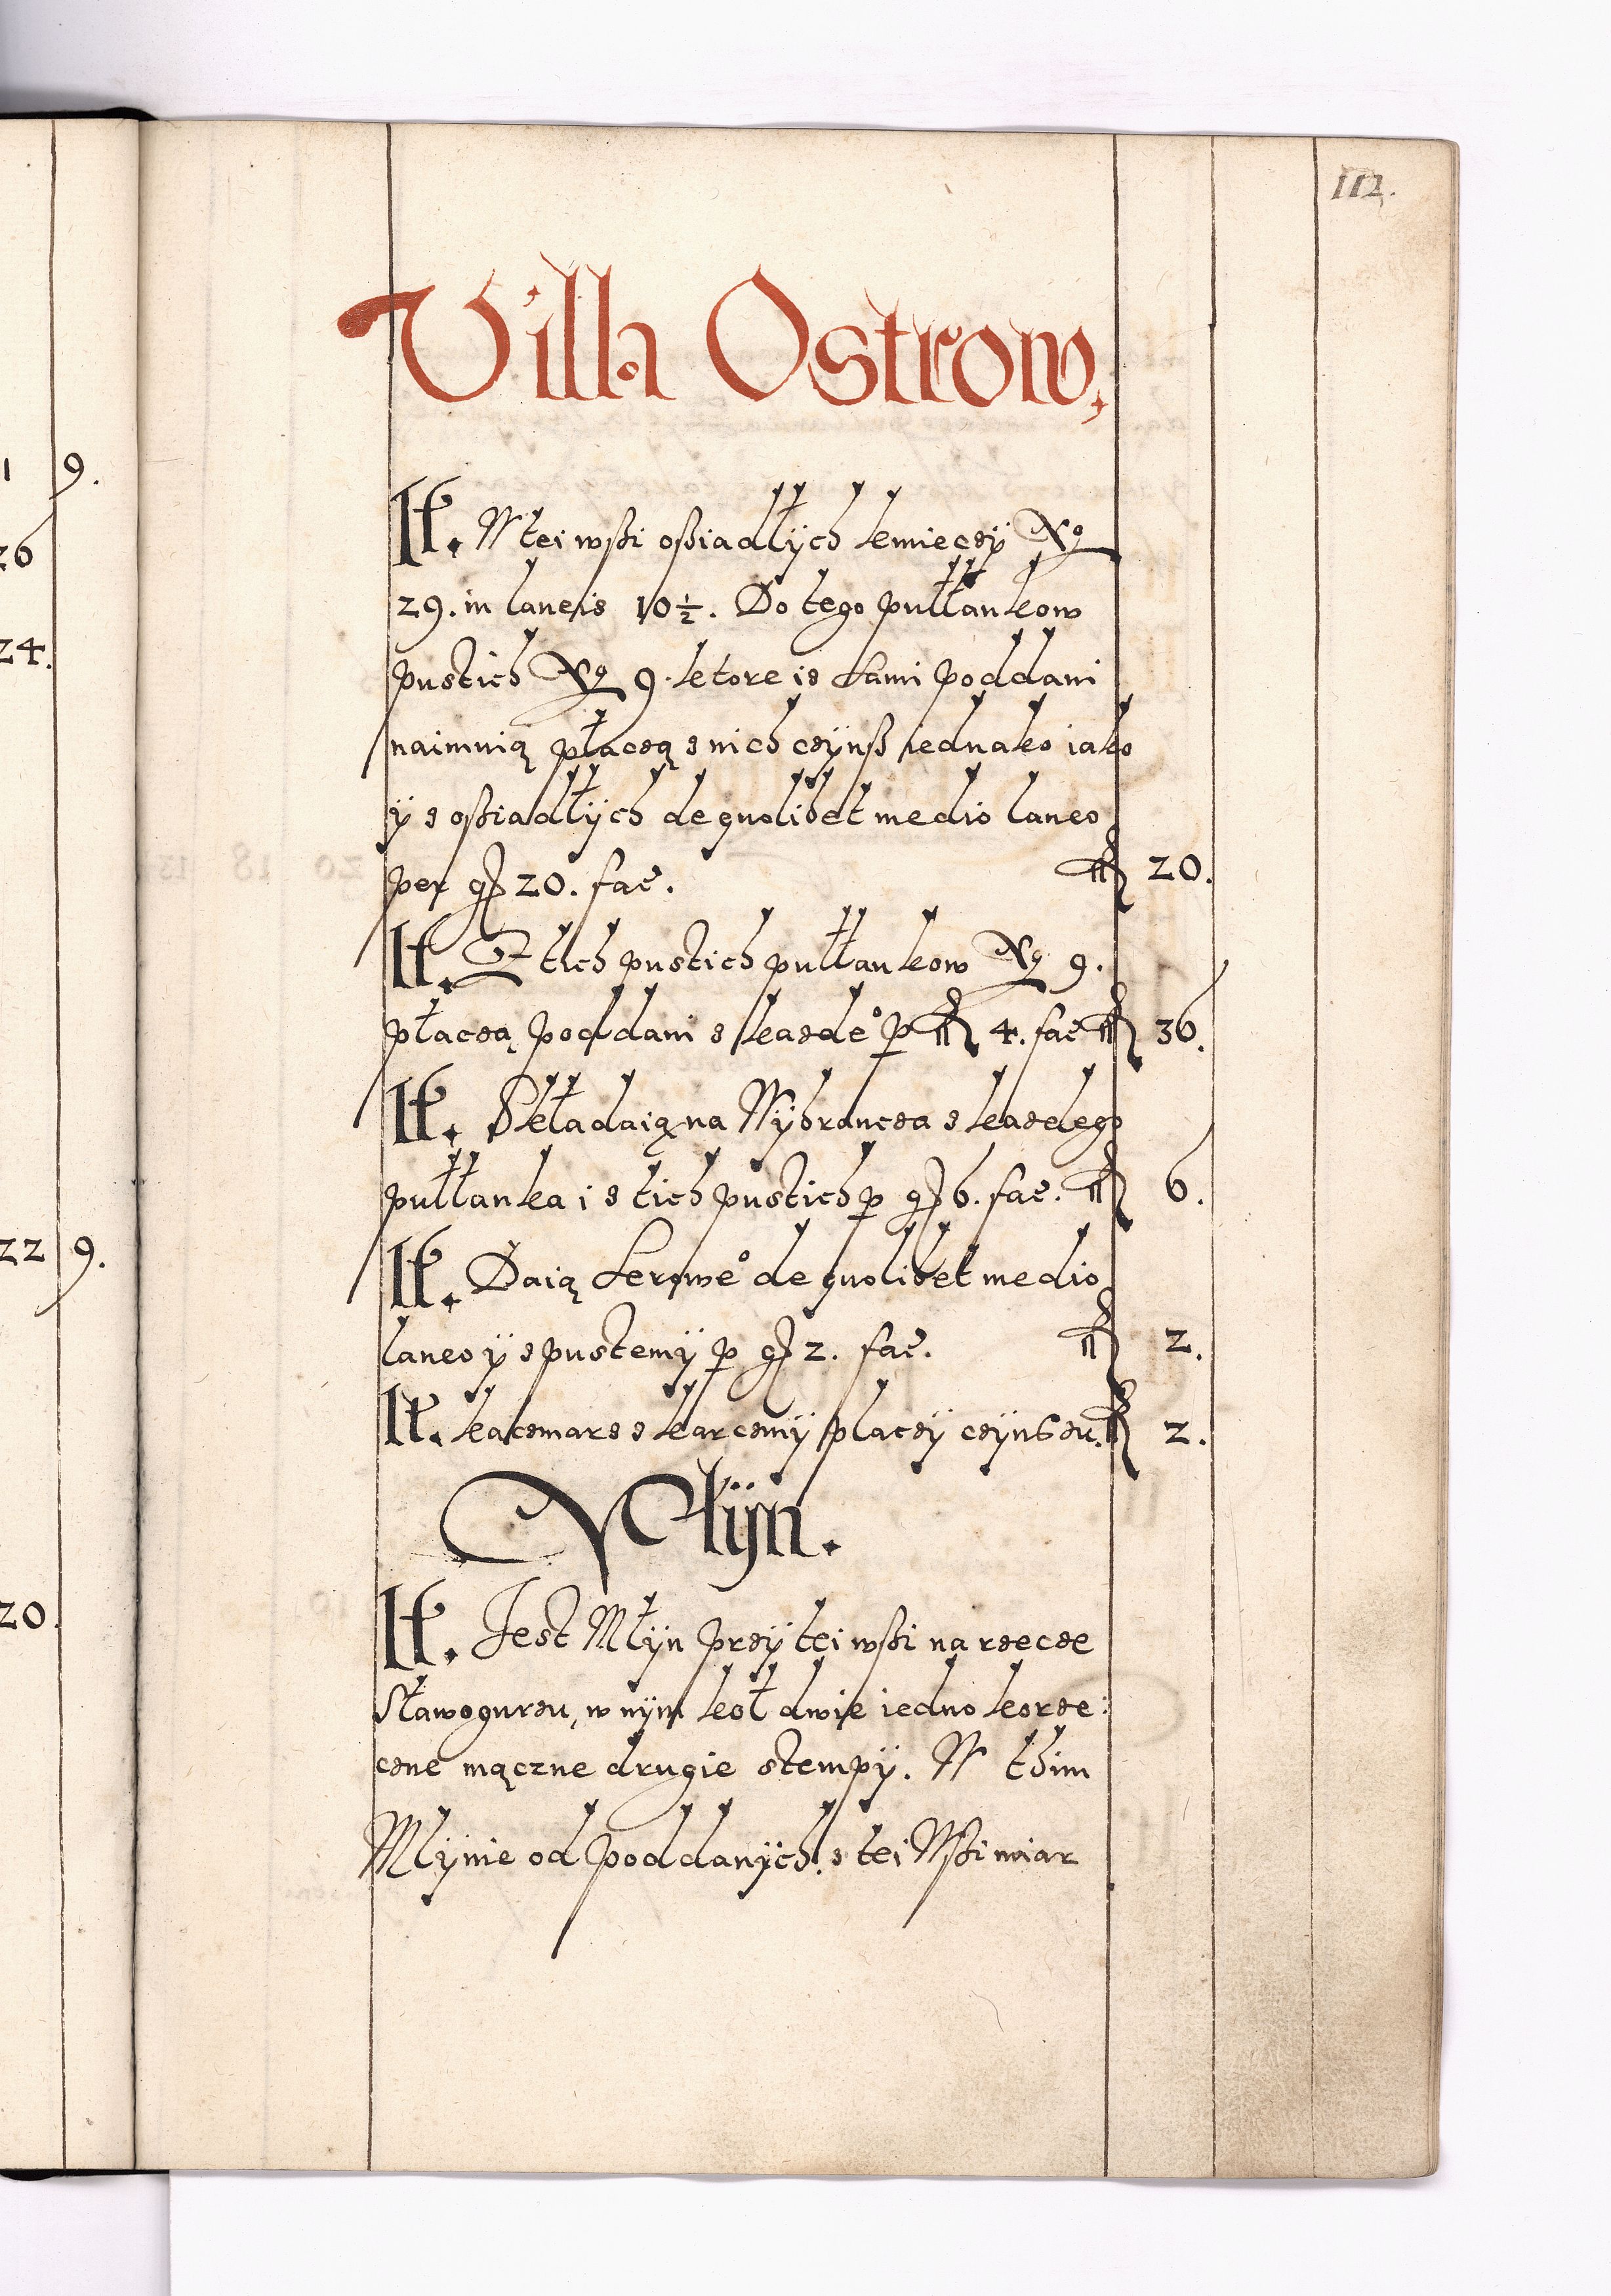 112.
1 9.
26
24.
22 9.
20.
Villa Ostrow,
It. W tei wßi oßiadłÿch kmieczÿ No
29. in laneis 10½. Do tego pułłankow
pustich No 9. ktore iz sami poddani
naimuią płaczą z nich czÿnß iednako iako
ÿ z oßiadłÿch de quolibet medio laneo
per gr 20. fac. fl 20.
It. Z tich pustich pułłankow No 9.
płaczą poddani z kazde° p fl 4. fac fl 36.
It. Składaią na Wÿbrancza z kazdego
pułłanka i z tich pustich p gr 6. fac. fl 6.
It. Daią Serowe° de quolibet medio
laneo ÿ z pustemÿ p gr 2. fac. fl 2.
It. kaczmarz z karczmÿ placzÿ czÿnszu. fl 2.
Młÿn.
It. Jest Młÿn przÿ tei wßi na rzecze
Sławogurzu, w nÿm koł dwie iedno korze:
czne mączne drugie stempÿ. W thim
Mlÿnie od poddanÿch z tei Wßi miar